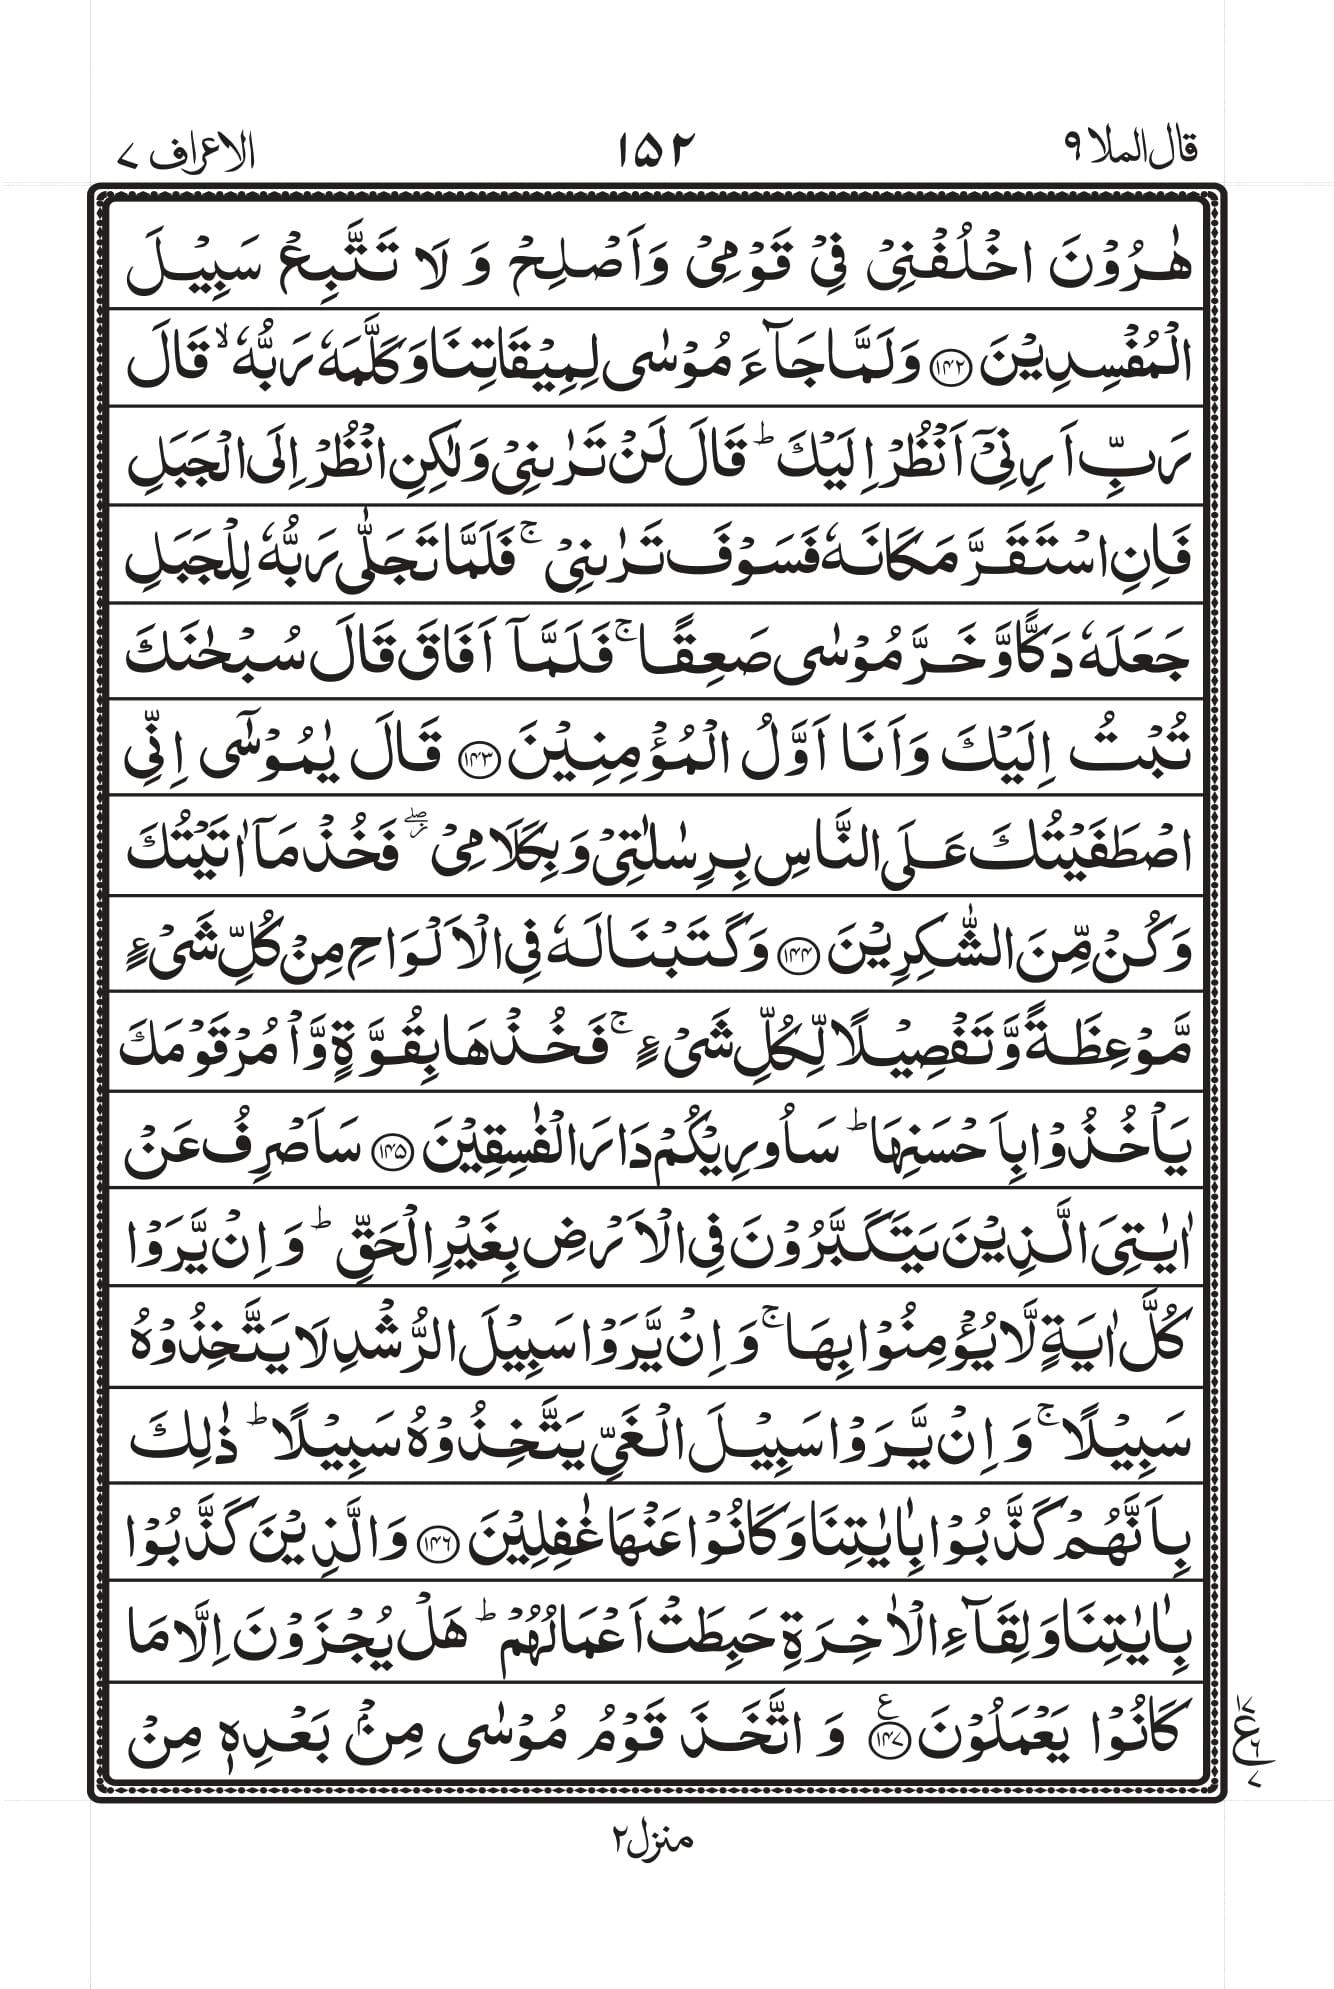 قال الملا ٩ ١٥٢ الاعراف ٧
هٰرُوْنَ اخْلُفْنِیْ فِیْ قَوْمِیْ وَاَصْلِحْ وَ لَا تَتَّبِعْ سَبِیْلَ
الْمُفْسِدِیْنَ ﴿۱۴۲﴾ وَلَمَّا جَآءَ مُوْسٰی لِمِیْقَاتِنَا وَكَلَّمَهٗ رَبُّهٗ ۙ قَالَ
رَبِّ اَرِنِیْۤ اَنْظُرْ اِلَیْكَ ؕ قَالَ لَنْ تَرٰىنِیْ وَلٰكِنِ انْظُرْ اِلَی الْجَبَلِ
فَاِنِ اسْتَقَرَّ مَكَانَهٗ فَسَوْفَ تَرٰىنِیْ ۚ فَلَمَّا تَجَلّٰی رَبُّهٗ لِلْجَبَلِ
جَعَلَهٗ دَكًّا وَّخَرَّ مُوْسٰی صَعِقًا ۚ فَلَمَّاۤ اَفَاقَ قَالَ سُبْحٰنَكَ
تُبْتُ اِلَیْكَ وَاَنَا اَوَّلُ الْمُؤْمِنِیْنَ ﴿۱۴۳﴾ قَالَ یٰمُوْسٰۤی اِنِّی
اصْطَفَیْتُكَ عَلَی النَّاسِ بِرِسٰلٰتِیْ وَبِكَلَامِیْ ۖؗ فَخُذْ مَاۤ اٰتَیْتُكَ
وَكُنْ مِّنَ الشّٰكِرِیْنَ ﴿۱۴۴﴾ وَكَتَبْنَا لَهٗ فِی الْاَلْوَاحِ مِنْ كُلِّ شَیْءٍ
مَّوْعِظَةً وَّتَفْصِیْلًا لِّكُلِّ شَیْءٍ ۚ فَخُذْهَا بِقُوَّةٍ وَّاْمُرْ قَوْمَكَ
یَاْخُذُوْا بِاَحْسَنِهَا ؕ سَاُورِیْكُمْ دَارَ الْفٰسِقِیْنَ ﴿۱۴۵﴾ سَاَصْرِفُ عَنْ
اٰیٰتِیَ الَّذِیْنَ یَتَكَبَّرُوْنَ فِی الْاَرْضِ بِغَیْرِ الْحَقِّ ؕ وَاِنْ یَّرَوْا
كُلَّ اٰیَةٍ لَّا یُؤْمِنُوْا بِهَا ۚ وَاِنْ یَّرَوْا سَبِیْلَ الرُّشْدِ لَا یَتَّخِذُوْهُ
سَبِیْلًا ۚ وَاِنْ یَّرَوْا سَبِیْلَ الْغَیِّ یَتَّخِذُوْهُ سَبِیْلًا ؕ ذٰلِكَ
بِاَنَّهُمْ كَذَّبُوْا بِاٰیٰتِنَا وَكَانُوْا عَنْهَا غٰفِلِیْنَ ﴿۱۴۶﴾ وَالَّذِیْنَ كَذَّبُوْا
بِاٰیٰتِنَا وَلِقَآءِ الْاٰخِرَةِ حَبِطَتْ اَعْمَالُهُمْ ؕ هَلْ یُجْزَوْنَ اِلَّا مَا
كَانُوْا یَعْمَلُوْنَ ﴿۱۴۷﴾ ع وَ اتَّخَذَ قَوْمُ مُوْسٰی مِنْۢ بَعْدِهٖ مِنْ
۱۷ ع ۶ ۷
منزل ٢